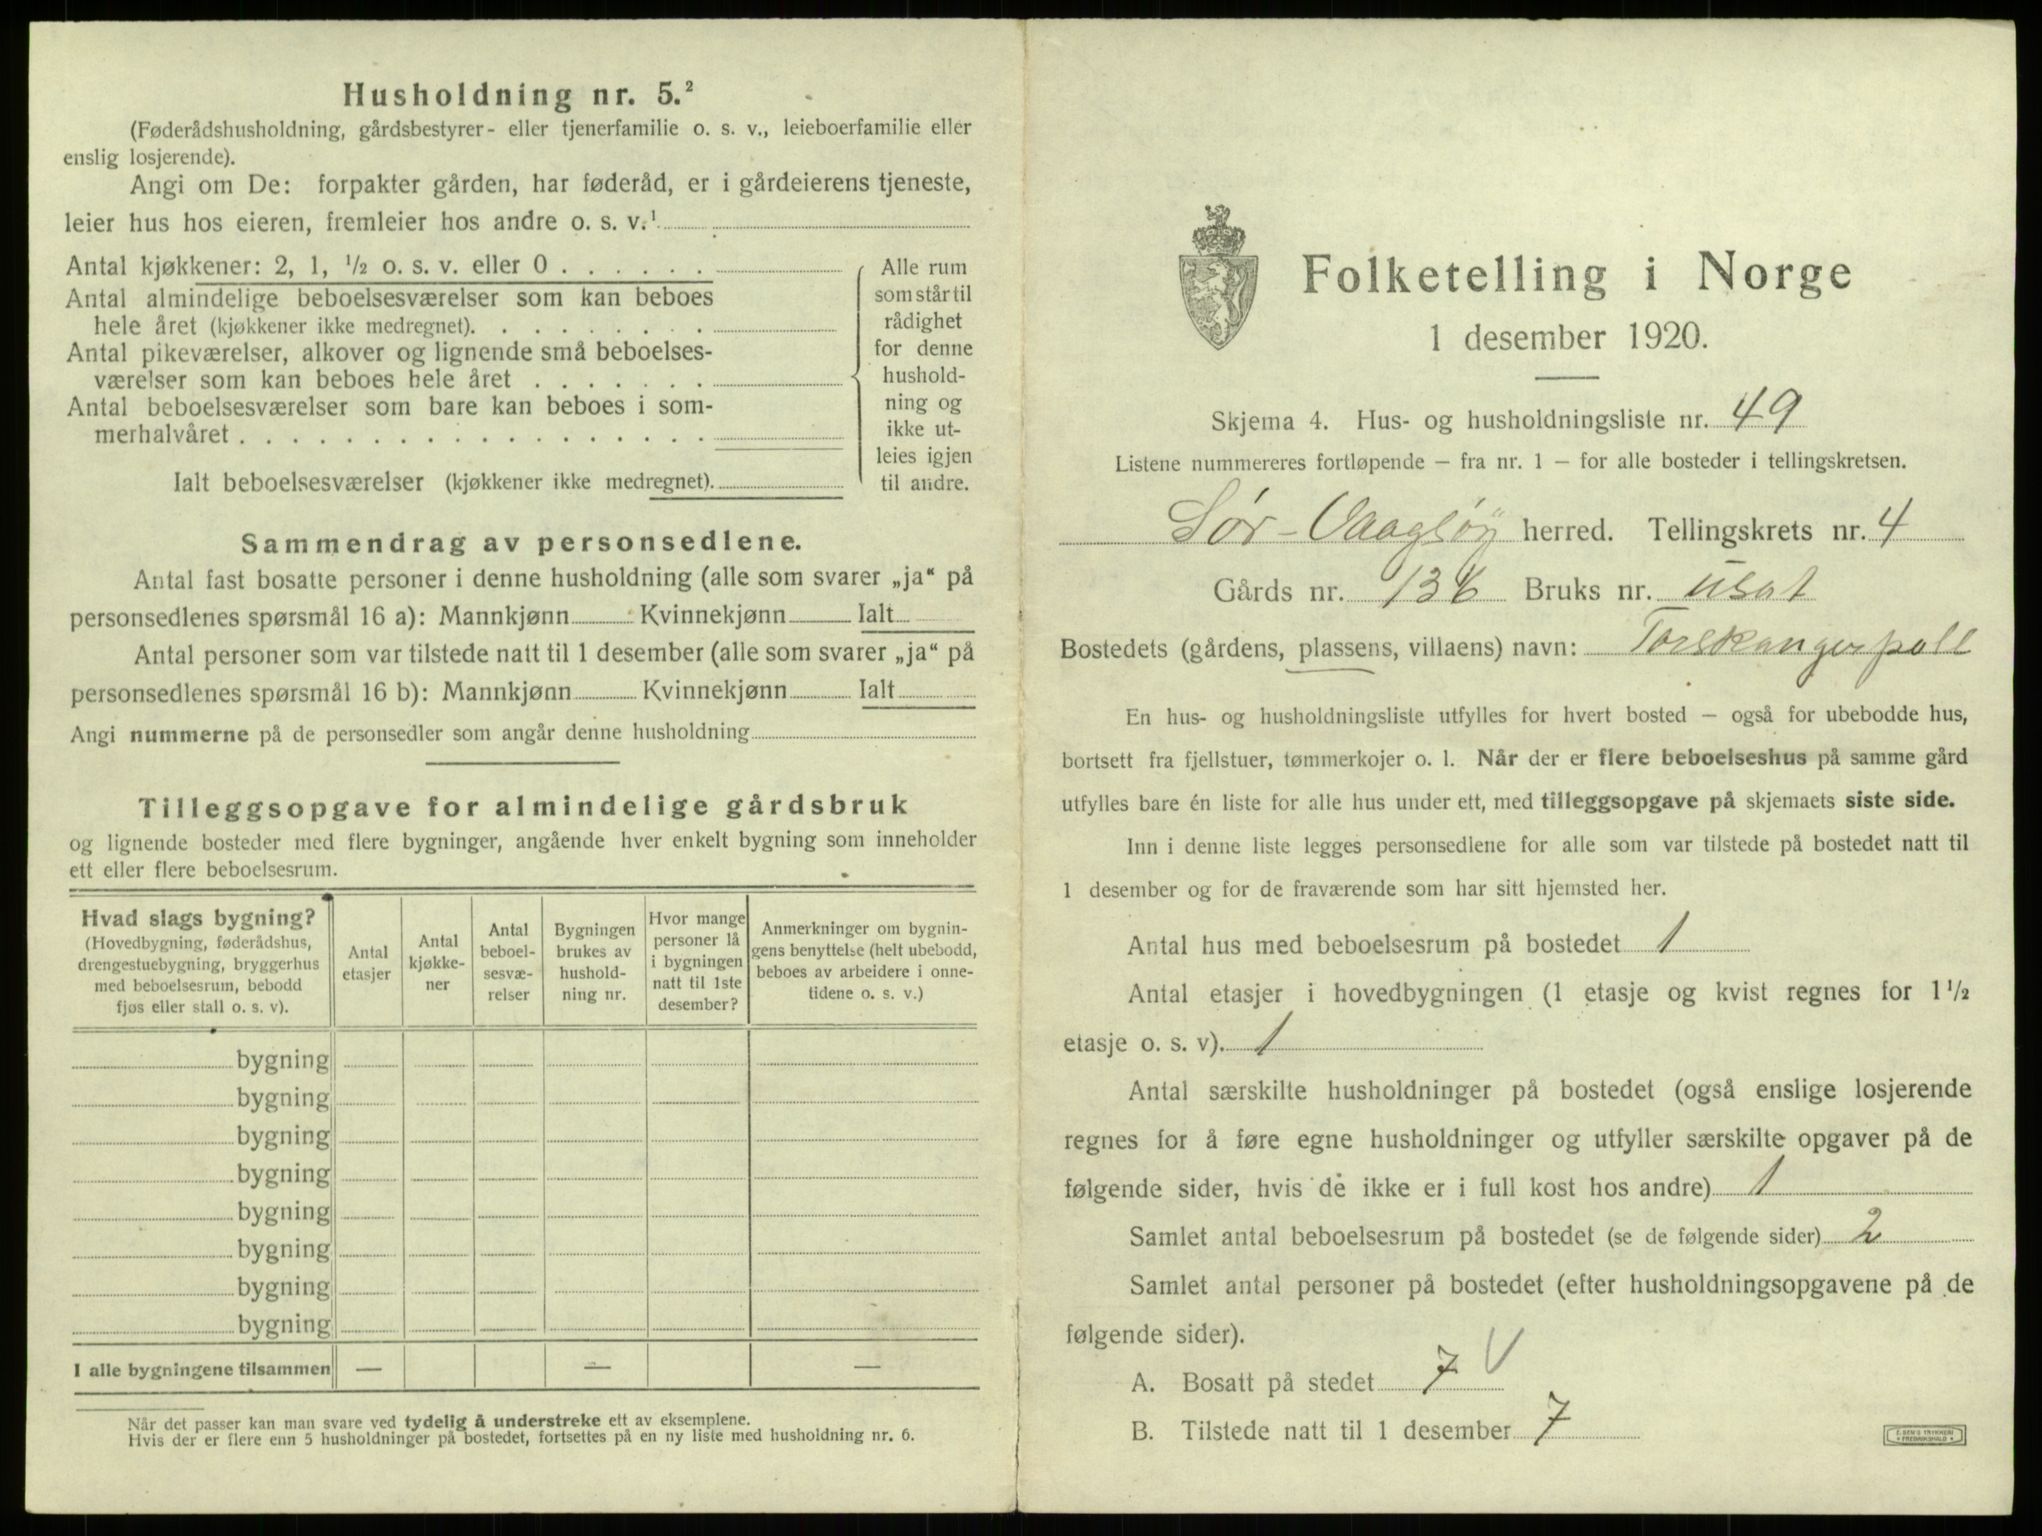 Husholdning nr. 5.²
(Føderådshusholdning, gårdsbestyrer- eller tjenerfamilie o. s. v., leieboerfamilie eller
enslig losjerende).
Angi om De: forpakter gården, har føderåd, er i gårdeierens tjeneste,
leier hus hos eieren, fremleier hos andre o. s. v.¹
Antal kjøkkener: 2, 1, ½ o. s. v. eller 0
Antal almindelige beboelsesværelser som kan beboes
hele året (kjøkkener ikke medregnet).
Antal pikeværelser, alkover og lignende små beboelses-
værelser som kan beboes hele året
Antal beboelsesværelser som bare kan beboes i som-
merhalvåret
Ialt beboelsesværelser (kjøkkener ikke medregnet).
Alle rum
som står til
rådighet
for denne
hushold-
ning og
ikke ut-
leies igjen
til andre.
Sammendrag av personsedlene.
Antal fast bosatte personer i denne husholdning (alle som svarer „ja“ på
personsedlenes spørsmål 16 a): Mannkjønn Kvinnekjønn Ialt
Antal personer som var tilstede natt til 1 desember (alle som svarer „ja“ på
personsedlenes spørsmål 16 b): Mannkjønn Kvinnekjønn Ialt
Angi nummerne på de personsedler som angår denne husholdning
Tilleggsopgave for almindelige gårdsbruk
og lignende bosteder med flere bygninger, angående hver enkelt bygning som inneholder
ett eller flere beboelsesrum.
Hvad slags bygning?
(Hovedbygning, føderådshus,
drengestuebygning, bryggerhus
med beboelsesrum, bebodd
fjøs eller stall o. s. v).
Antal
etasjer
Antal
kjøkke-
ner
Antal
beboel-
sesvæ-
relser
Bygningen
brukes av
hushold-
ning nr.
Hvor mange
personer lå
i bygningen
natt til 1ste
desember?
Anmerkninger om bygnin-
gens benyttelse (helt ubebodd,
beboes av arbeidere i onne-
tidene o. s. v.)
bygning
bygning
bygning
bygning
bygning
bygning
bygning
bygning
I alle bygningene tilsammen — — —
Når det passer kan man svare ved tydelig å understreke ett av eksemplene.
Hvis der er flere enn 5 husholdninger på bostedet, fortsettes på en ny liste med husholdning nr. 6.
Folketelling i Norge
1 desember 1920.
Skjema 4. Hus- og husholdningsliste nr. 49
Listene nummereres fortløpende – fra nr. 1 – for alle bosteder i tellingskretsen.
Sør-Vaagsøy herred. Tellingskrets nr. 4
Gårds nr. 136 Bruks nr. usat
Bostedets (gårdens, plassens, villaens) navn: Torskangerpoll
En hus- og husholdningsliste utfylles for hvert bosted – også for ubebodde hus,
bortsett fra fjellstuer, tømmerkojer o. l. Når der er flere beboelseshus på samme gård
utfylles bare én liste for alle hus under ett, med tilleggsopgave på skjemaets siste side.
Inn i denne liste legges personsedlene for alle som var tilstede på bostedet natt til
1 desember og for de fraværende som har sitt hjemsted her.
Antal hus med beboelsesrum på bostedet 1
Antal etasjer i hovedbygningen (1 etasje og kvist regnes for 1½
etasje o. s. v). 1
Antal særskilte husholdninger på bostedet (også enslige losjerende
regnes for å føre egne husholdninger og utfyller særskilte opgaver på de
følgende sider, hvis de ikke er i full kost hos andre) 1
Samlet antal beboelsesrum på bostedet (se de følgende sider) 2
Samlet antal personer på bostedet (efter husholdningsopgavene på de
følgende sider).
A. Bosatt på stedet 7 V
B. Tilstede natt til 1 desember 7